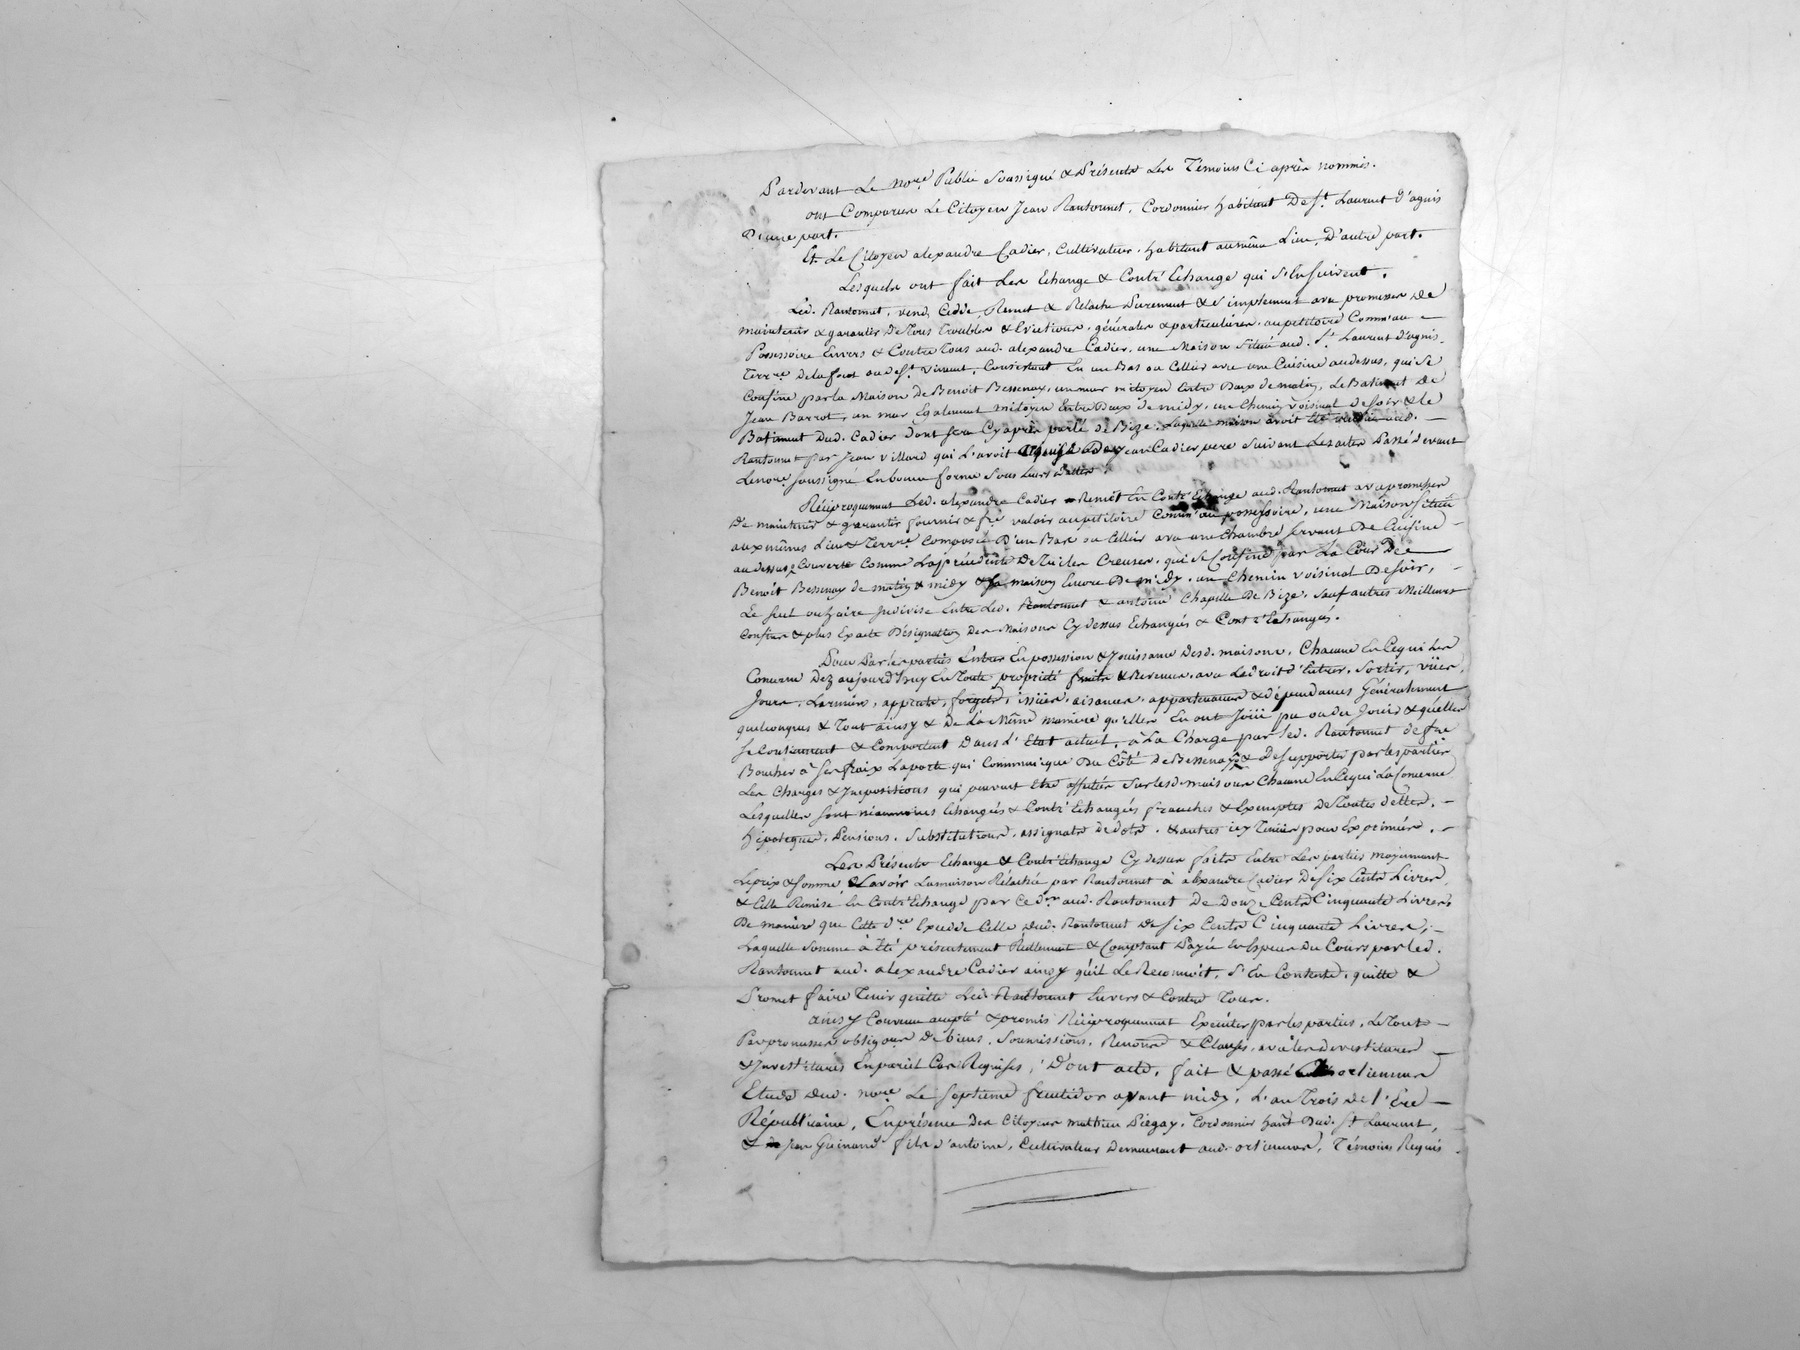 Pardevant Le no.re Public Soussigné & Présents Les Témoins Ci après nommés.
ont Comparus Le Citoyen Jean Rantonnet, Cordonnier habitant De St. Laurent d'agnis
D'une part.
Et Le Citoyen alexandre Cadier, Cultivateur, habitant au même Lieu, D'autre part.
Lesquels ont fait Les Echange & Contr'Echange qui S'Ensuivent.
Led. Rantonnet, vend, Cédde, Remet & Relache Purement & Simplement avec promesses de
maintenir & garantir De Tous Troubles & Evictions, générales & particulières, au petitoire Comm'au
Possessoire Envers & Contre Tous aud. alexandre Cadier, une Maison Située aud. St. Laurent d'agnis,
Terr.re De la foret ou de St. vincent, Consistant En un Bas ou Cellier avec une Cuisine au dessus, qui Se
Confine par la Maison de Benoit Bessenay, un mur mitoyen Entre Deux de matin, Le Batiment De
Jean Barrot, un mur Egalement mitoyen Entre Deux de midy, un Chemin voisinal de Soir & le
Batiment Dud. Cadier dont Sera Cy après parlé de Bize, Laquelle maison avoit Eté vendue aud.
Rantonnet par Jean Villard qui L'avoit acquise de Jean Cadier pere Suivant Les actes Passé Devant
Le no.re Soussigné En bonne forme Sous Leurs Dattes.
Réciproquement Led. alexandre Cadier Remet En Contr'Echange aud. Rantonnet avec promesses
De maintenir & garantir fournir & f.re valoir au petitoire Comm'au possessoire, une Maison Située
aux mêmes Lieu & Terr.re Composée D'un Bas ou Cellier avec une Chambre Servant De Cuisine
au dessus, Couverte Comme La précédente De Tuiles Creuses, qui Se Confine par La Cour De
Benoît Bessenay de matin & midy & Sa maison Encore De midy, un Chemin voisinal De Soir,
Le Suel ou haire Indivise Entre Led. Rantonnet & antoine Chapelle De Bize, Sauf autres Meilleurs
Confins & plus Exacte Désignation Des Maisons Cy dessus Echangés & Contr'Echangés.
Pour Par les parties Entrer En possession & Jouissance Desd. maisons, Chacune En Ce qui Les
Concerne Dez aujourd'huy En Toute propriété fruits & Revenus, avec Le droit d'Entrer, Sortir, vües,
Jours, Larmiers, appents, forgets, issües, aisances, appartenances & dépendances Généralement
quelconques & Tout ainsy & De La Même manière qu'elles En ont Joüi pu ou du Jouir & qu'elles
Se Contiennent & Comportent Dans L'Etat actuel, à La Charge par Led. Rantonnet de f.re
Boucher à Ses fraix La porte qui Communique Du Côté de Bessenay & De Supporter par les parties
Les Charges & Impositions qui peuvent Etre affectées Sur lesd. maisons Chacune En Ce qui La Concerne
Lesquelles Sont néanmoins Echangés & Contr'Echangés franches & Exemptes De Toutes dettes,
Hipoteques, Pensions, Substitutions, assignats de dots, & autres icy Tenües pour Exprimées.
Les Présents Echange & Contr'Echange Cy dessus faits Entre Les parties moyennant
Le prix & Somme, Savoir La maison Relachée par Rantonnet à alexandre Cadier De Six Cents Livres,
& Celle Remise En Contr'Echange par Ce d.er aud. Rantonnet De Douze Cents Cinquante Livres
De manière que Cette d.re Excedde Celle dud. Rantonnet de Six Cents Cinquante Livres,
Laquelle Somme à Eté présentement Réellement & Comptant Payée En Especes Du Cours par Led.
Rantonnet aud. alexandre Cadier ainsy qu'il Le Reconnoit, S'En Contente, quitte &
Promet faire Tenir quitte Led. Rantonnet Envers & Contre Tous.
ainsy Convenu accepté & promis Réciproquement Exécuter par les parties, Le Tout
Par promesses obligaon De biens, Soumissions, Renonces & Clauses, avec les devestitures
& Investitures En pareil Cas Requises, Dont acte, fait & passé orlienas
Etude dud. no.re Le Septieme fructidor avant midy, L'an Trois de l'ère
Républicaine, En présence Des Citoyens mathieu Piégay, Cordonnier hant Dud. St. Laurent,
& Jean Guinand fils d'antoine, Cultivateur Demeurant aud. orlienas, Témoins Requis